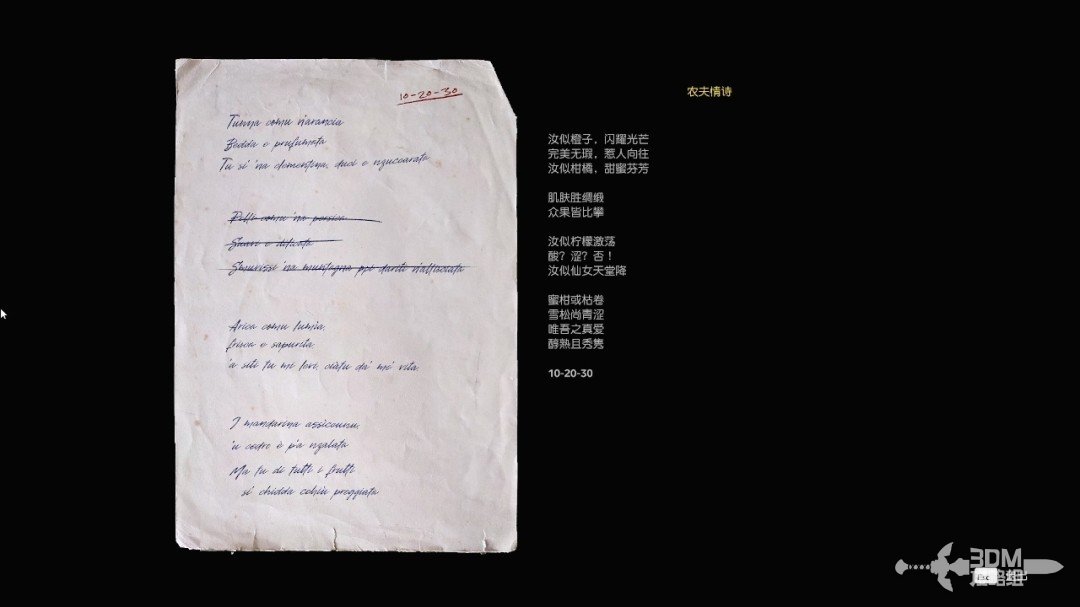 10-20-30
Tunna comu n'arancia
Bedda e prufumata
Tu si 'na clementina, duci e nzuccarata
Pelli comu 'na persica
Suavi e dilicata
Arica comu lumìa,
frisca e sapurita
'a siti tu mi levi, ciàtu da' me' vita.
I mandarina assiccunu,
'u cedro è p'a nzalata
Ma tu di tutti i frutti
si chidda cchiù preggiata
农夫情诗
汝似橙子，闪耀光芒
完美无瑕，惹人向往
汝似柑橘，甜蜜芬芳
肌肤胜绸缎
众果皆比攀
汝似柠檬激荡
酸？涩？否！
汝似仙女天堂降
蜜柑或枯卷
雪松尚青涩
唯吾之真爱
醇熟且秀隽
10-20-30
3DM
Esc